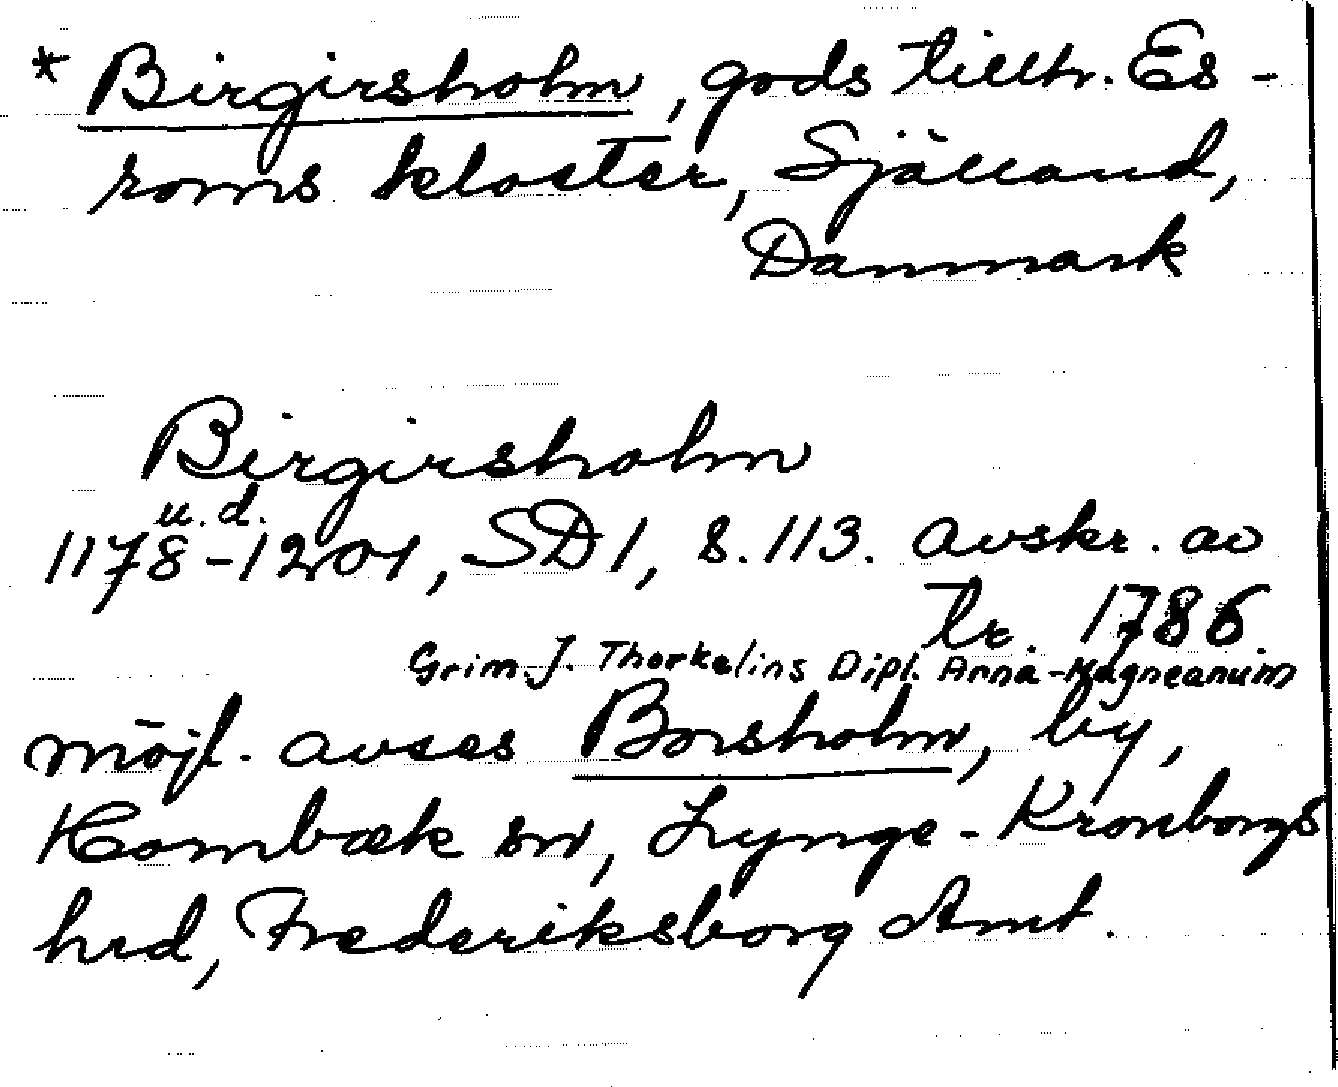 * Birgirsholm, gods tillh. Es-
roms kloster, Själland,
Danmark
Birgirsholm
u.d.
1178-1201, SD 1, s. 113. avskr. av
tr. 1786.
Grim. J. Thorkelins Dipl. Arna-Magneanum
möjl. avses Borsholm, by,
Hornbæk sn, Lynge-Kronborgs
hrd, Frederiksborg Amt.